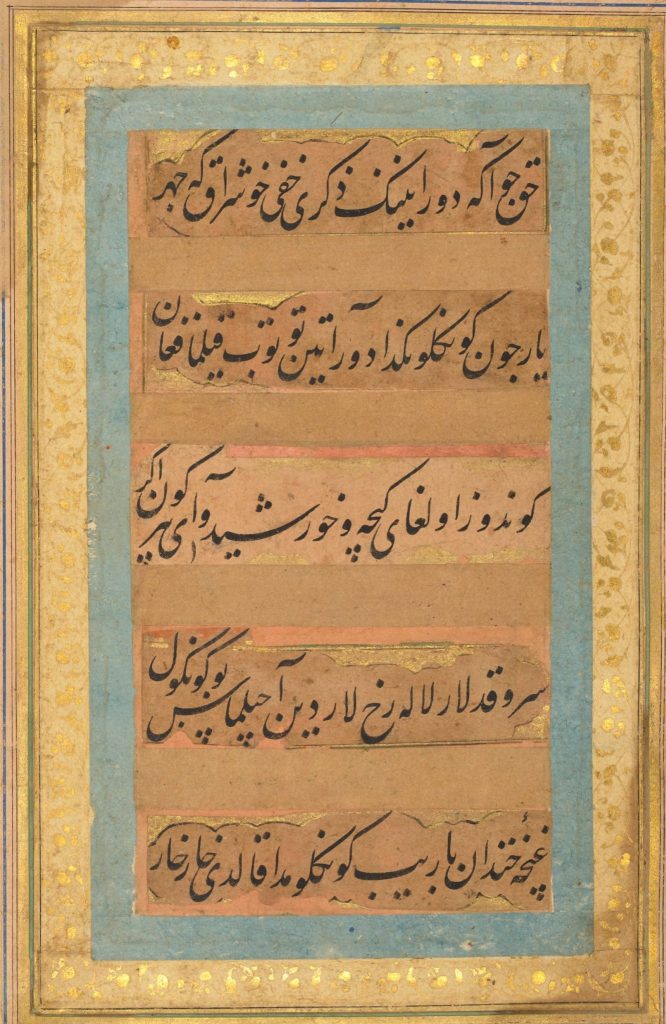 حق جو آکه دورا نینک ذکری خفی خوشراق که جهر
یار جون کونکلومکدا دور آتین توتوب قیلما فغان
کوندوز اولغای کیچه و خورشید آوای هر کون اکر
سرو قدلار لاله رخ لار دین آچیلماس بو کونکول
غنچهٔ خندان باریب کونکلومدا قالدی خار خار